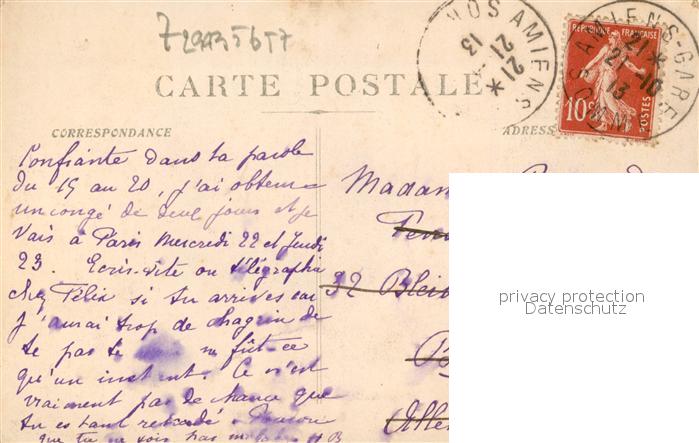 CARTE POSTALE
CORRESPONDANCE
ADRESS
AMIENS-GARE
21-10
13
AMIENS
21
13
REPUBLIQUE FRANÇAISE
10c
POSTES
Confiante dans ta parole
du 15 au 20, j'ai obtenu
un congé de deux jours et je
vais à Paris Mercredi 22 et Jeudi
23. Ecris-vite ou télégraphie
chez Félix si tu arrives car
j'aurai trop de chagrin de
te pas te fût-ce
qu'un instant. Ce n'est
vraiment pas de chance que
tu es tant retardé
que tu ne sois pas
Madam
32
Alle
privacy protection
Datenschutz